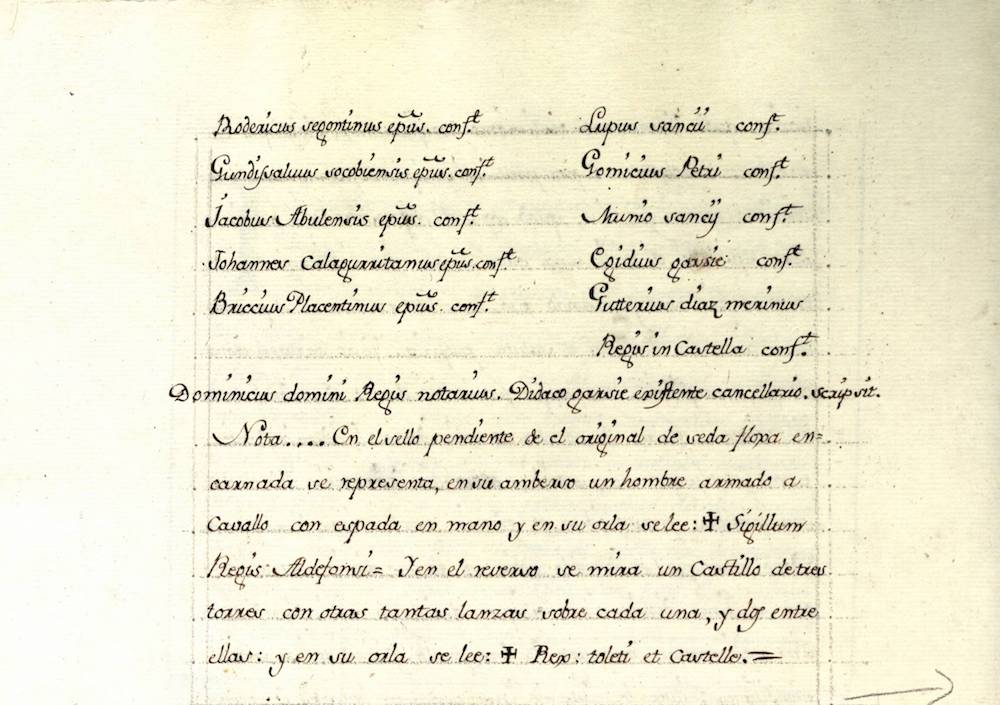 Rodericus segontinus epũs. confᵗ.
Gundisalvus socobiensis epũs. confᵗ.
Jacobus Abulensis epũs. confᵗ.
Johannes Calagurritanus epũs. confᵗ.
Briccius Placentinus epũs. confᵗ.
Lupus sancii confᵗ.
Gomicius Petri confᵗ.
Munio sancij confᵗ.
Egidius garsie confᵗ.
Gutterius diaz merinus
Regis in Castella confᵗ.
Dominicus domini Regis notarius. Didaco garsie existente cancellario. scripsit.
Nota .... En el sello pendiente de el original de seda floxa en=
carnada se representa, en su amberso un hombre armado a
Cavallo con espada en mano y en su orla se lee: ✠ Sigillum
Regis Aldefonsi = Y en el reverso se mira un Castillo de tres
torres con otras tantas lanzas sobre cada una, y dos entre
ellas: y en su orla se lee: ✠ Rex: toleti et Castelle. =